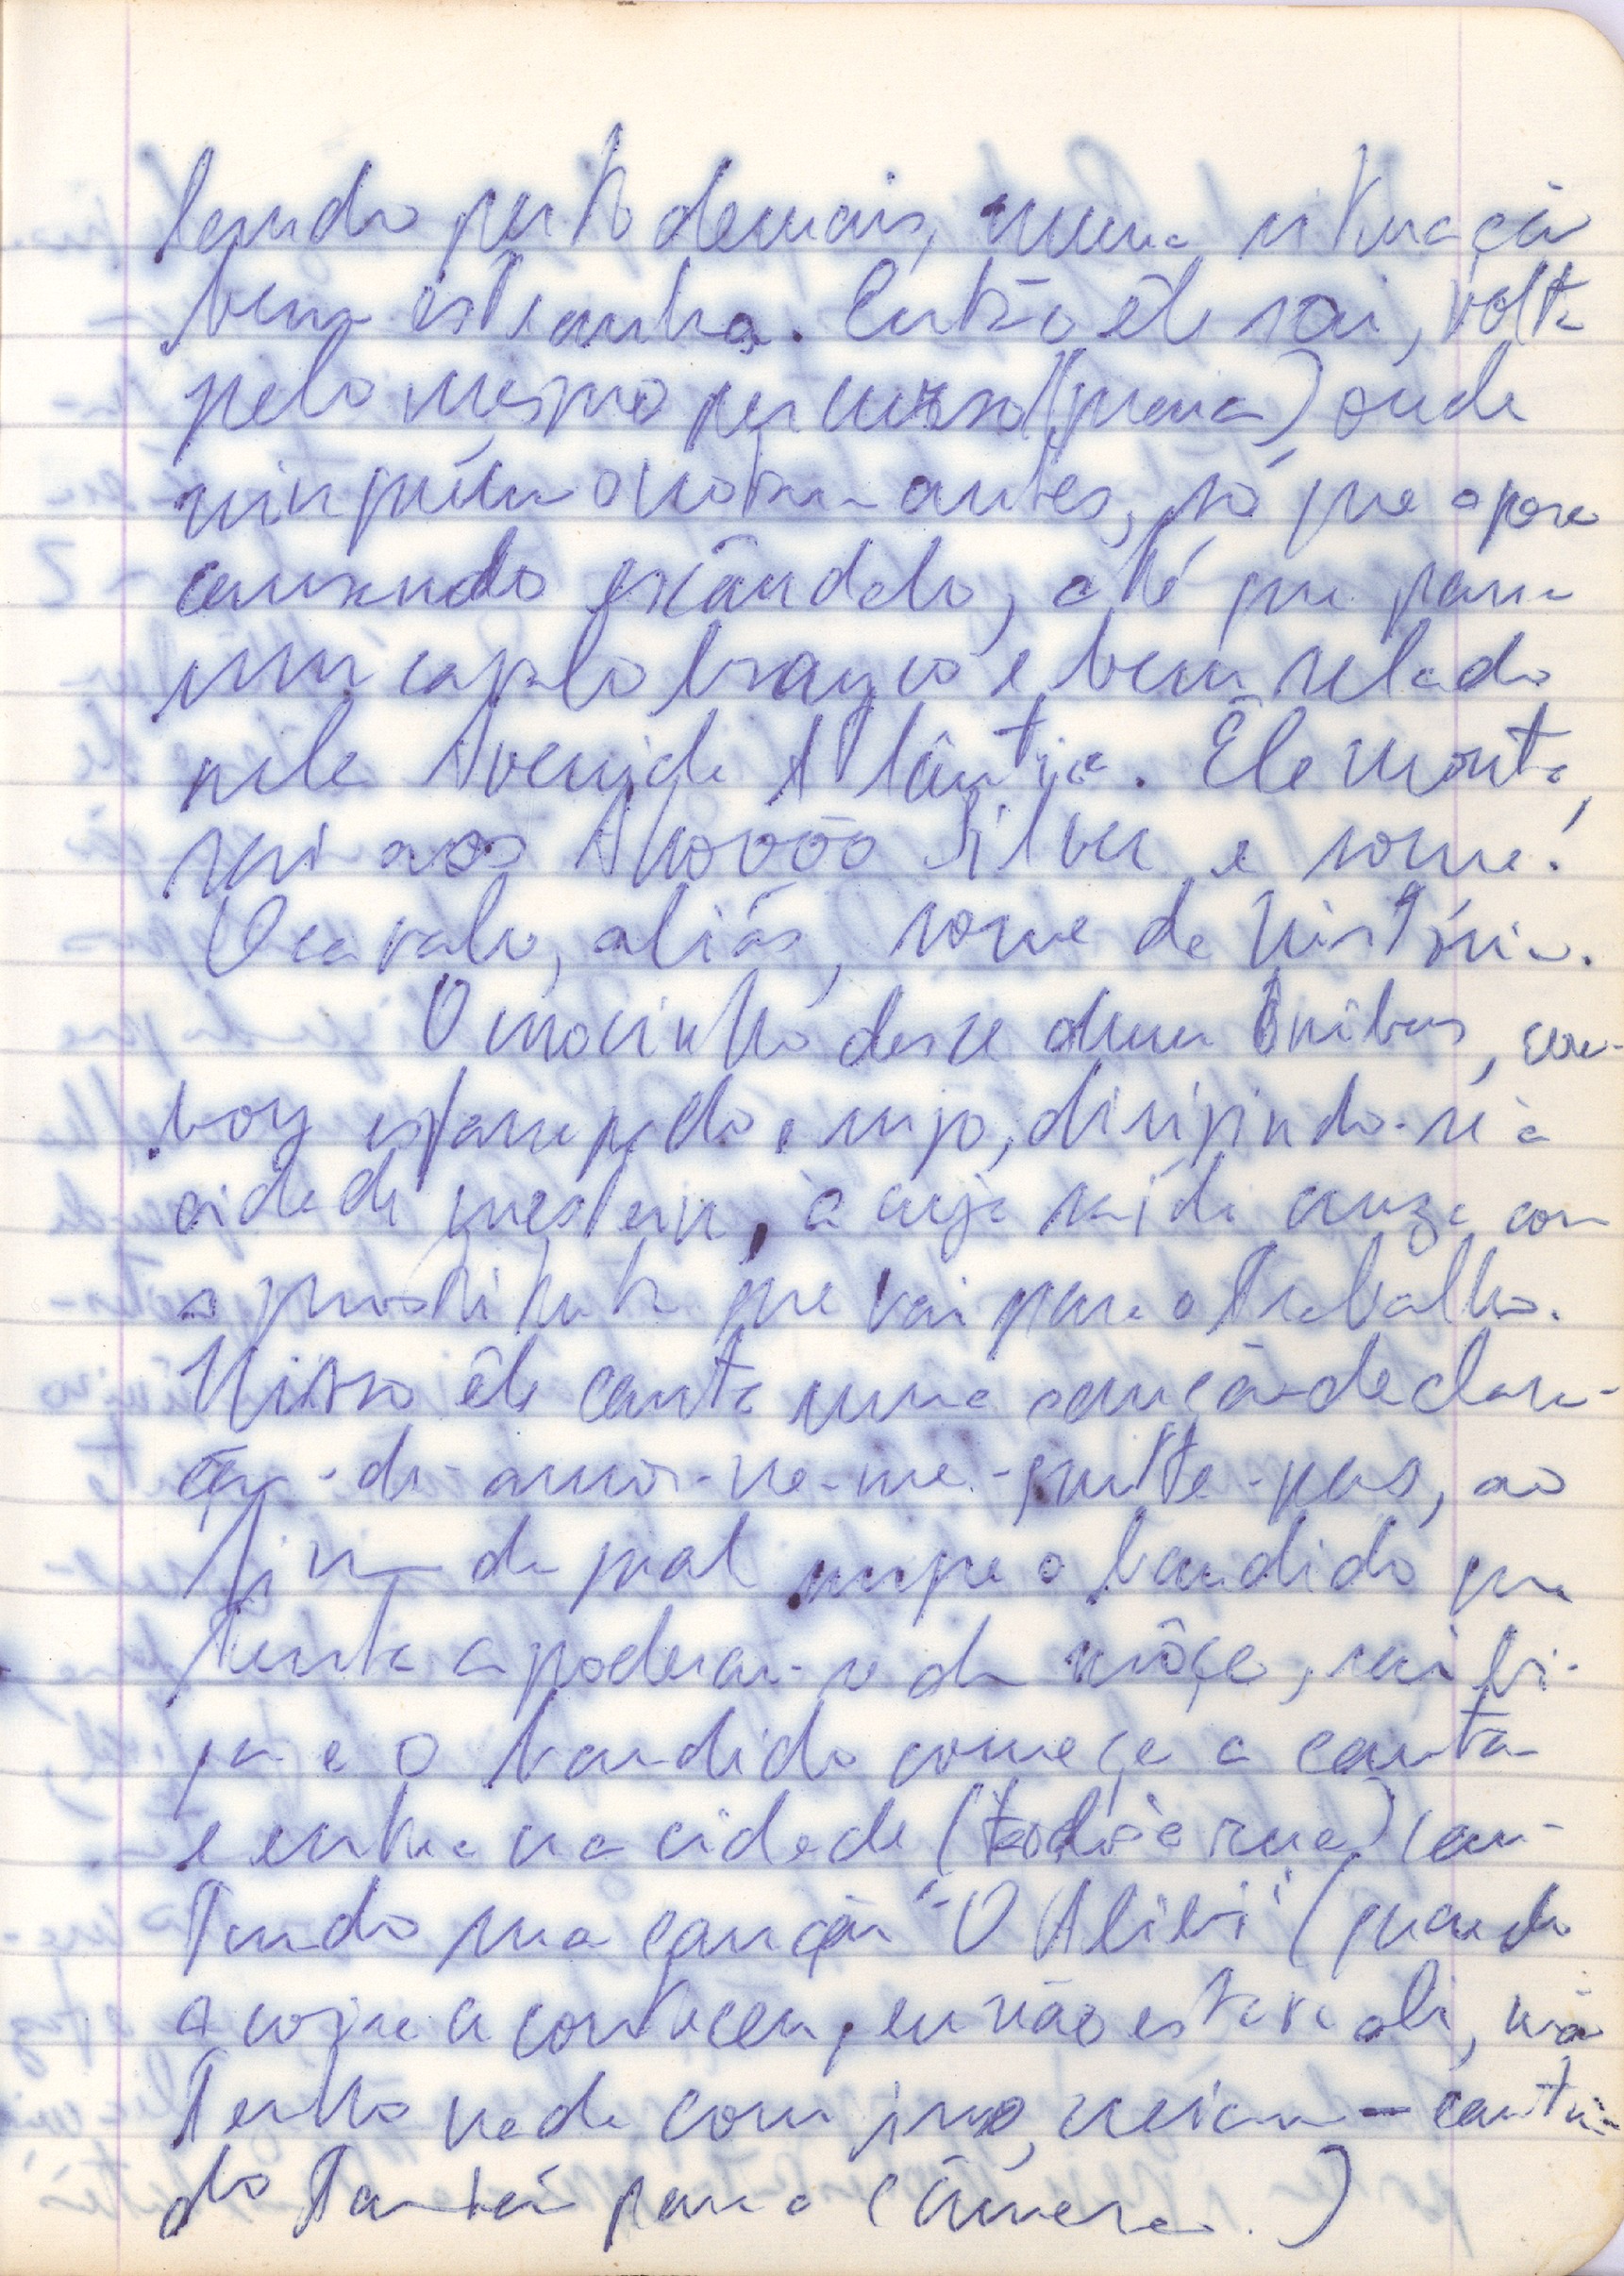 tando perto demais, numa situação
bem estranha. Então êle sai, volta
pelo mesmo percurso (praia) onde
ninguém o notara antes, só que agora
causando escândalo, até que para
um cavalo branco e bem selado
pela Avenida Atlântica. Êle monta,
sai aos Aiôôôô Silver e some!
O cavalo, aliás, some da história.
O mocinho desce dum ônibus, cow-
boy esfarrapado e sujo, dirigindo-se à
cidade western, à cuja saída cruza com
a prostituta que vai para o trabalho.
Nisso êle canta uma canção-declara-
ção-de-amor-ne-me-quitte-pas, ao
fim da qual surge o bandido que
tenta apoderar-se da môça, sai bri-
ga e o bandido começa a cantar
e entra na cidade (toda a rua) can-
tando sua canção "O Alibi" (quando
a coisa aconteceu, eu não estava ali, não
tenho nada com isso, neiam — cantan-
do também para a câmera.)